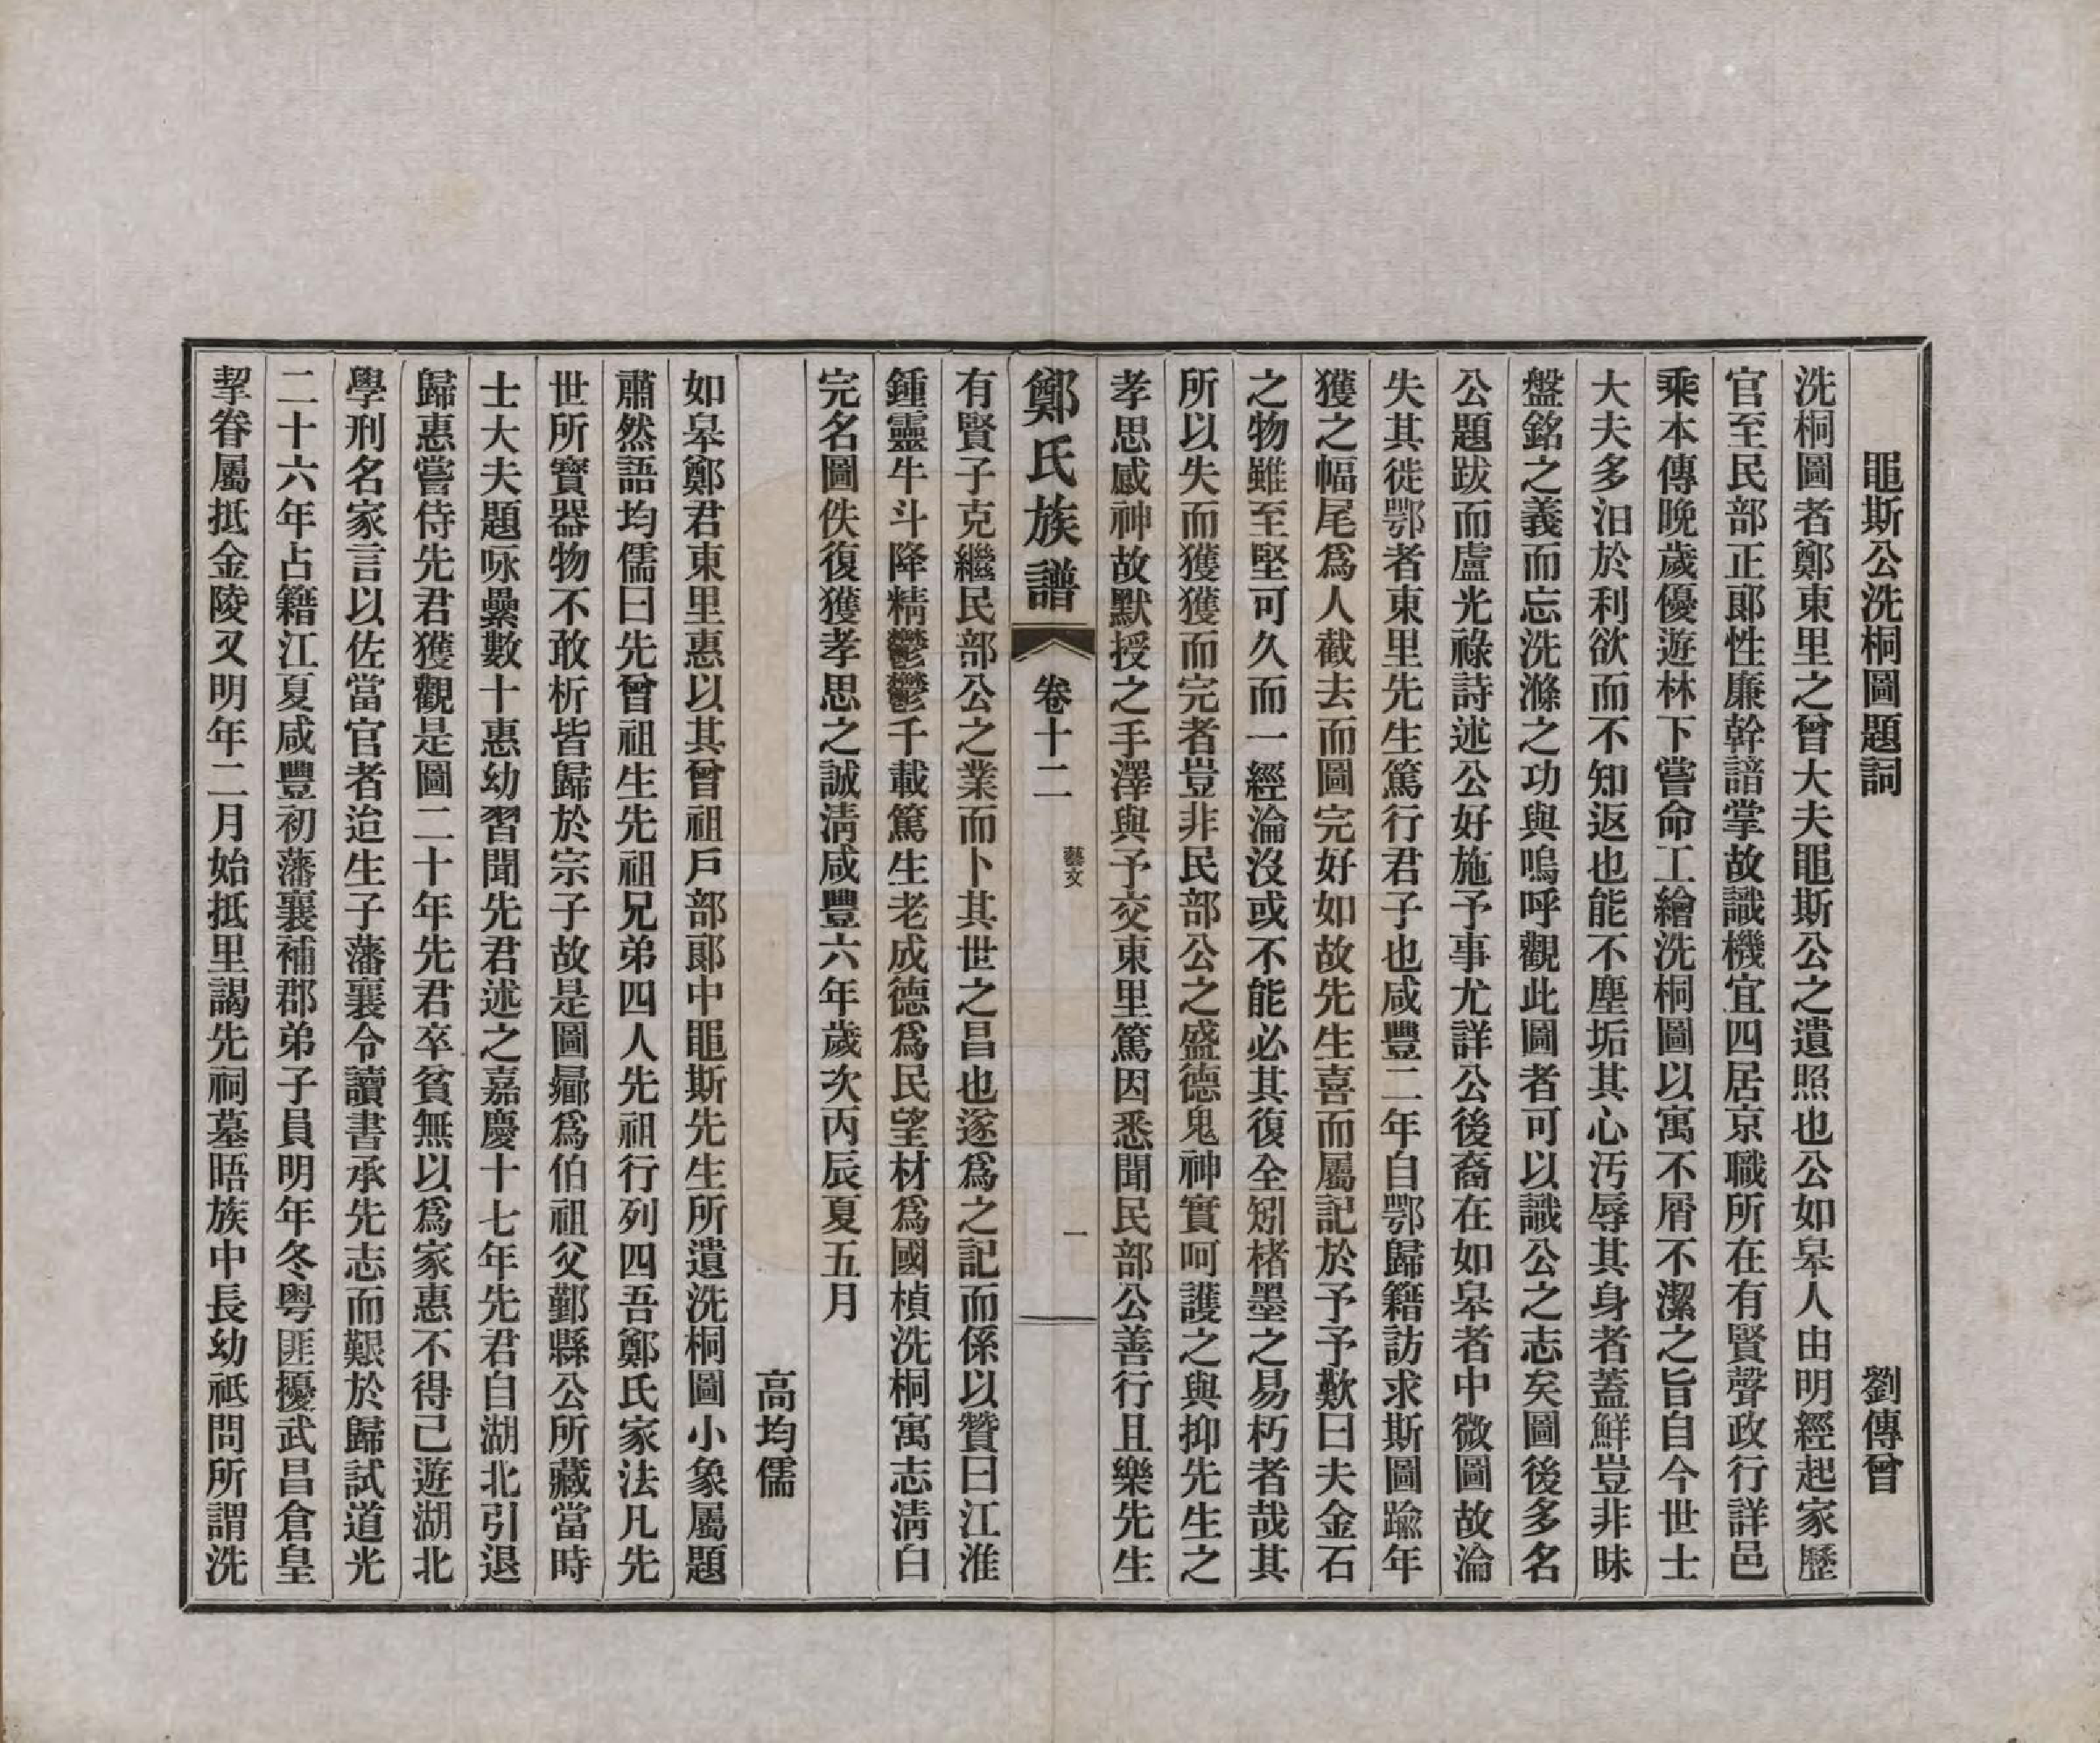 黽斯公洗桐圖題詞　劉傳曾
洗桐圖者鄭東里之曾大夫黽斯公之遺照也公如皋人由明經起家歷
官至民部正郎性廉幹諳掌故識機宜四居京職所在有賢聲政行詳邑
乘本傳晚歲優遊林下嘗命工繪洗桐圖以寓不屑不潔之旨自今世士
大夫多汨於利欲而不知返也能不塵垢其心汚辱其身者蓋鮮豈非昧
盤銘之義而忘洗滌之功與嗚呼觀此圖者可以識公之志矣圖後多名
公題跋而盧光祿詩述公好施予事尤詳公後裔在如皋者中微圖故淪
失其徙鄂者東里先生篤行君子也咸豐二年自鄂歸籍訪求斯圖踰年
獲之幅尾爲人截去而圖完好如故先生喜而屬記於予予歎曰夫金石
之物雖至堅可久而一經淪沒或不能必其復全矧楮墨之易朽者哉其
所以失而獲獲而完者豈非民部公之盛德鬼神實呵護之與抑先生之
孝思感神故默授之手澤與予交東里篤因悉聞民部公善行且樂先生
鄭氏族譜　卷十二　藝文　一
有賢子克繼民部公之業而卜其世之昌也遂爲之記而係以贊曰江淮
鍾靈牛斗降精鬱鬱千載篤生老成德爲民望材爲國楨洗桐寓志清白
完名圖佚復獲孝思之誠清咸豐六年歲次丙辰夏五月
高均儒
如皋鄭君東里惠以其曾祖戶部郎中黽斯先生所遺洗桐圖小象屬題
肅然語均儒曰先曾祖生先祖兄弟四人先祖行列四吾鄭氏家法凡先
世所寶器物不敢析皆歸於宗子故是圖歸爲伯祖父鄞縣公所藏當時
士大夫題咏纍數十惠幼習聞先君述之嘉慶十七年先君自湖北引退
歸惠嘗侍先君獲觀是圖二十年先君卒貧無以爲家惠不得已遊湖北
學刑名家言以佐當官者迨生子藩襄令讀書承先志而艱於歸試道光
二十六年占籍江夏咸豐初藩襄補郡弟子員明年冬粵匪擾武昌倉皇
挈眷屬抵金陵又明年二月始抵里謁先祠墓晤族中長幼祗問所謂洗